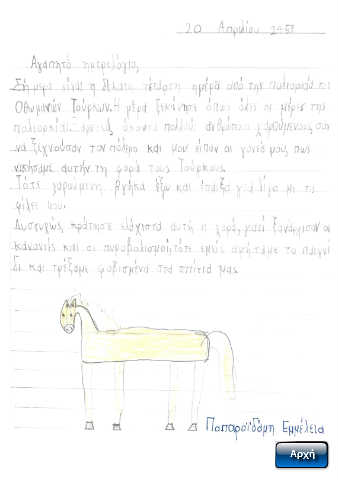 20 Απριλίου 1453
Αγαπητό ημερολόγιο,
Σήμερα είναι η δέκατη τέταρτη ημέρα από την πολιορκία των
Οθωμανών Τούρκων. Η μέρα ξεκίνησε όπως όλες οι μέρες της
πολιορκίας. άκουσα πολλούς ανθρώπους χαρούμενους σαν
να ξεχνούσαν τον πόλεμο και μου είπαν οι γονείς μου πως
νικήσαμε αυτήν τη φορά τους Τούρκους.
Τότε χαρούμενη βγήκα έξω και έπαιξα για λίγο με τις
φίλες μου.
Δυστυχώς κράτησε ελάχιστα αυτή η χαρά, γιατί ξανάρχισαν οι
κανονιές και οι πυροβολισμοί, τότε εμείς αφήσαμε το παιχνί
δι και τρέξαμε φοβισμένα στα σπίτια μας.
Παπαροϊδάμη Εμμέλεια
Αρχή